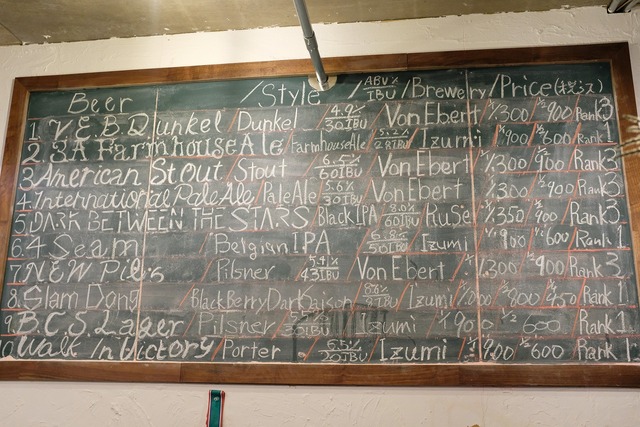 Beer /Style /ABV% IBU /Brewery /Price(税込)
1. V.E.B. Dunkel / Dunkel / 4.9% 30IBU / Von Ebert 1/1300 1/2 900 Rank3
2. 3A FarmhouseAle / FarmhouseAle / 5.2% Izumi 900 600 Rank1
3. American Stout / Stout / 6.5% 60IBU / Von Ebert 1/1300 1/2 900 Rank3
4. International Pale Ale / PaleAle / 5.6% 30IBU Von Ebert 1300 900 Rank3
5. DARK BETWEEN THE STARS / Black IPA 60IBU / RuSe 1350 900 Rank3
6. 4 Seam / Belgian IPA / 50IBU Izumi 600 Rank1
7. NEW Pils / Pilsner / 5.4% 43IBU Von Ebert 1300 900 Rank3
8. Slam Dong / BlackBerryDarkSaison / Izumi 800 450 Rank1
9. B.C.S Lager / Pilsner Izumi 900 600 / Rank1
Walk in Victory / Porter / 6.5% 20IBU / Izumi 900 600 / Rank1